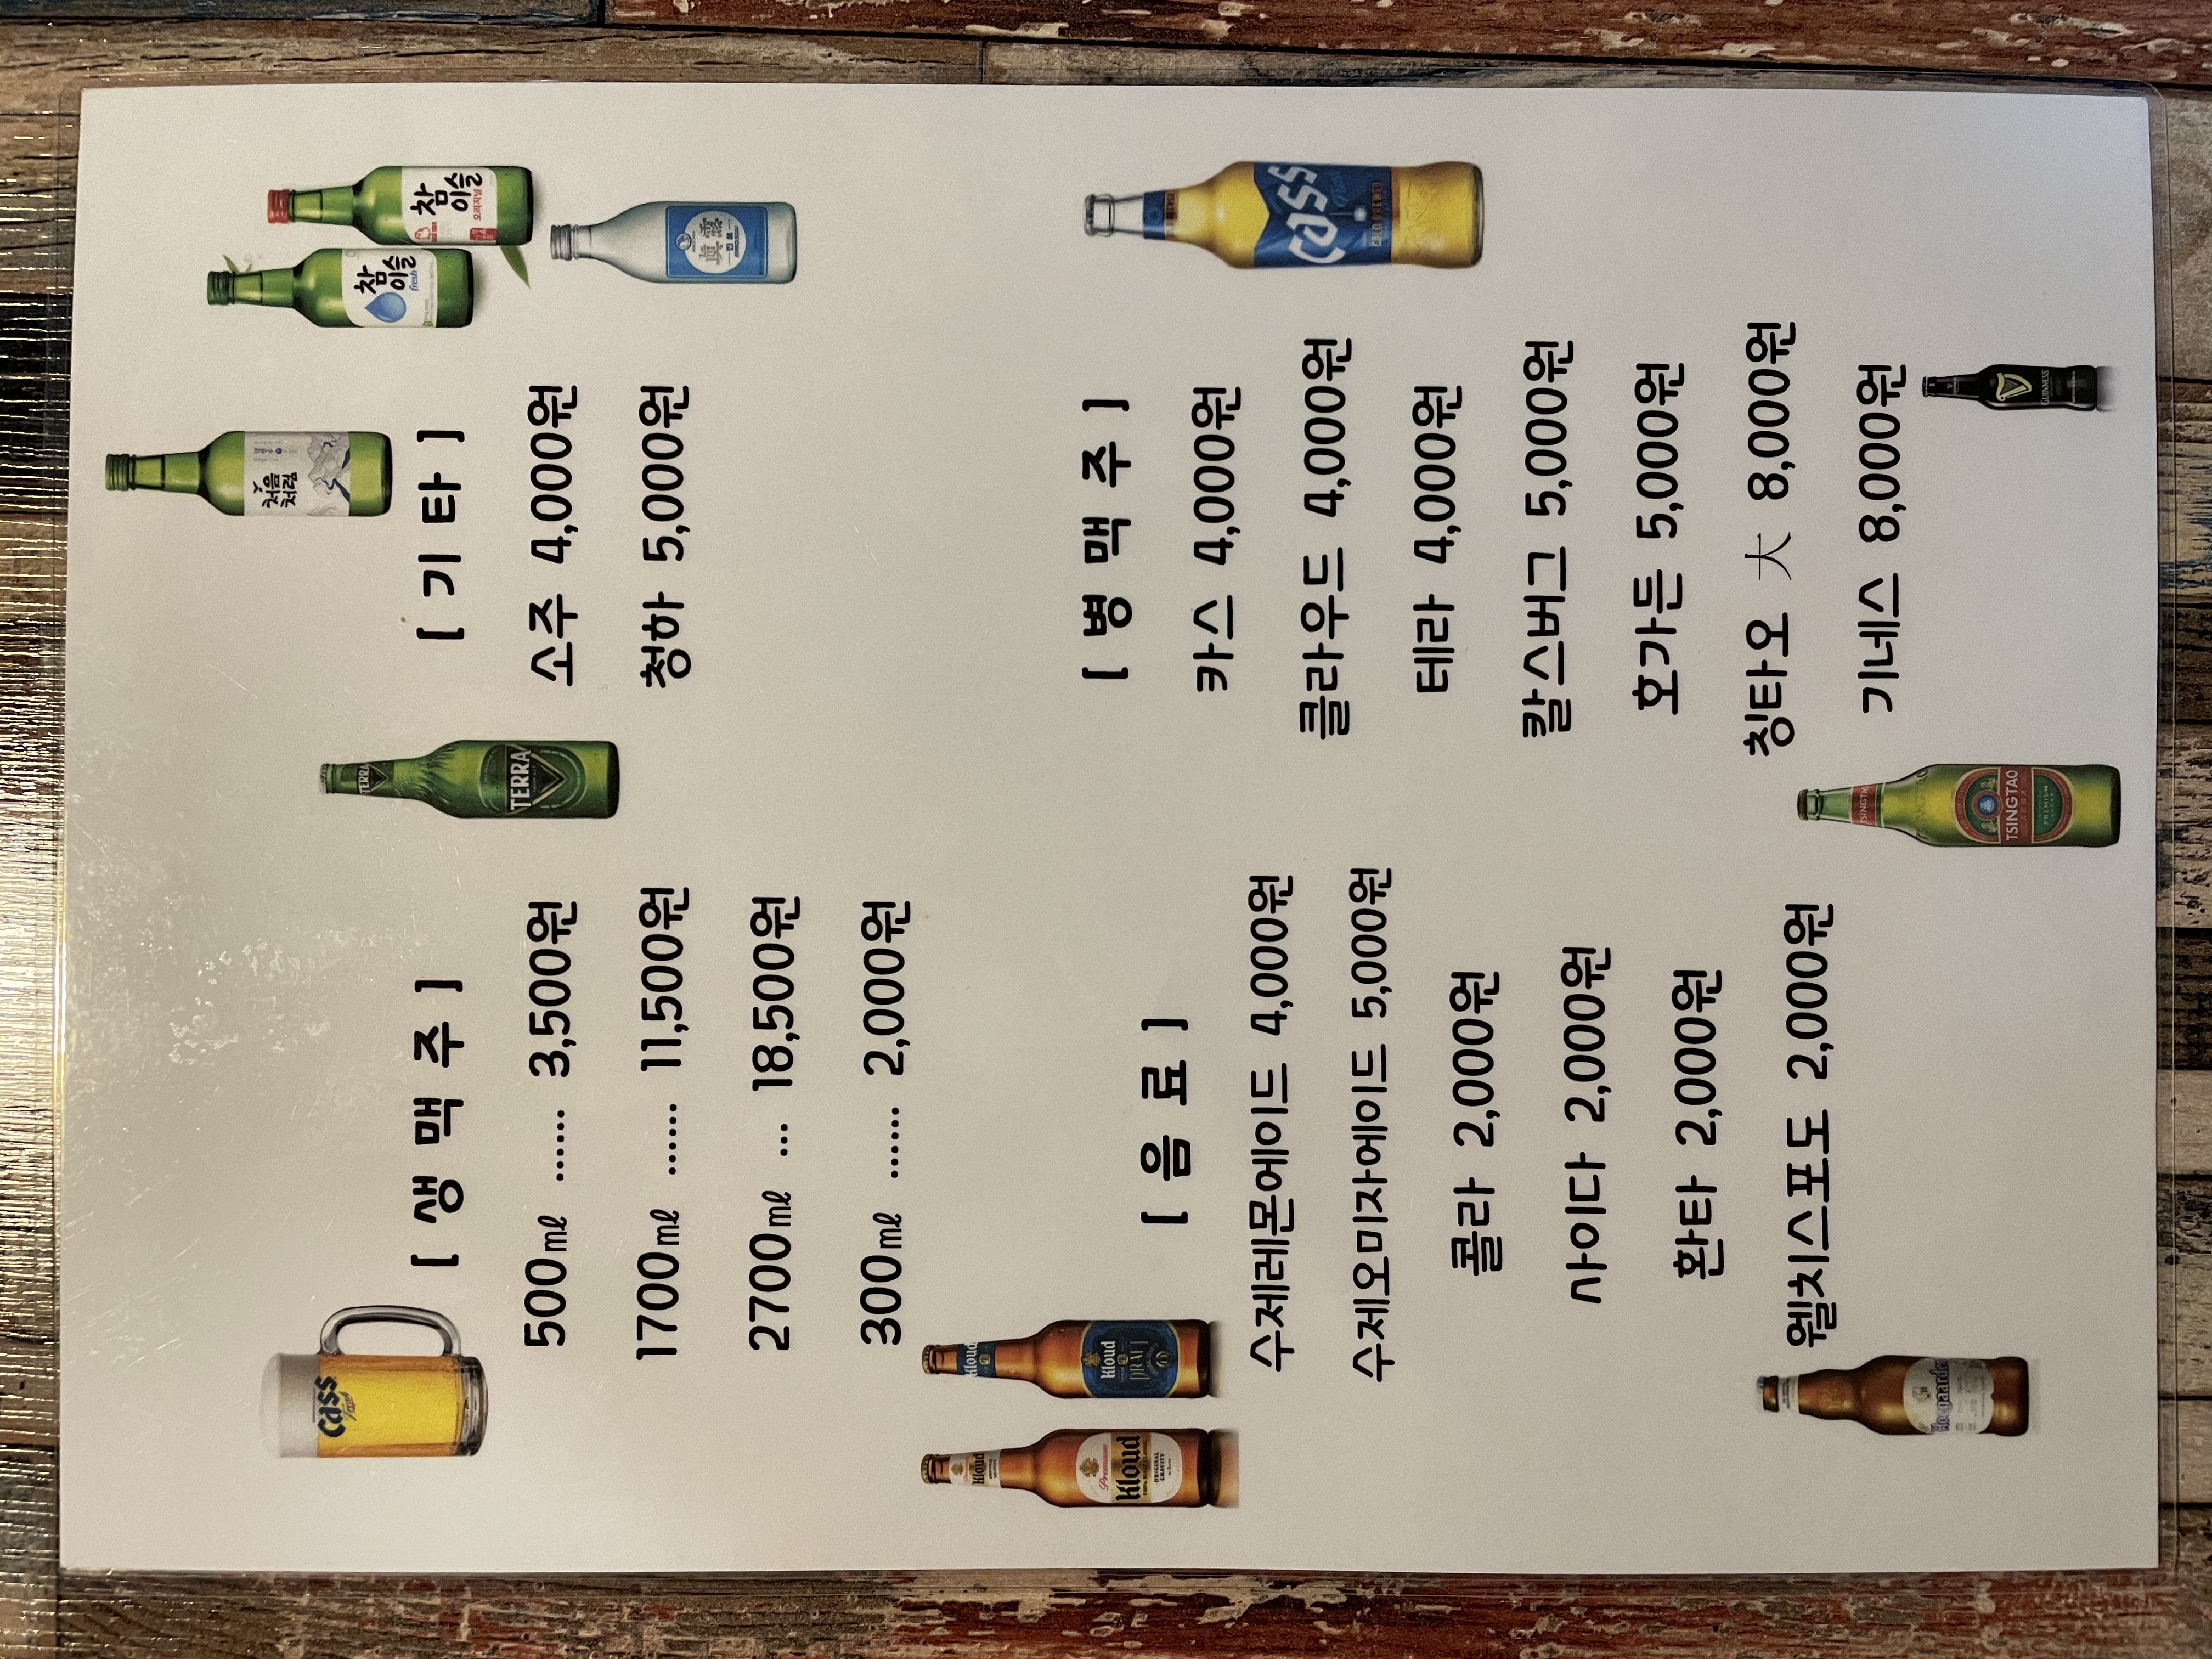 [ 생 맥 주 ]
500㎖ ...... 3,500원
1700㎖ ...... 11,500원
2700㎖ ... 18,500원
300㎖ ...... 2,000원
[ 기 타 ]
소주 4,000원
청하 5,000원
[ 음 료 ]
수제레몬에이드 4,000원
수제오미자에이드 5,000원
콜라 2,000원
사이다 2,000원
환타 2,000원
웰치스포도 2,000원
[ 병 맥 주 ]
카스 4,000원
클라우드 4,000원
테라 4,000원
칼스버그 5,000원
호가든 5,000원
칭타오 大 8,000원
기네스 8,000원
Cass
Fresh
TERRA
TERRA
처음
처럼
참
이슬
fresh
참
이슬
오리지널
眞露
Premium
Kloud
ORIGINAL
GRAVITY
Kloud
Kloud
DRAFT
Cass
Hoegaarden
TSINGTAO
PREMIUM
GUINNESS